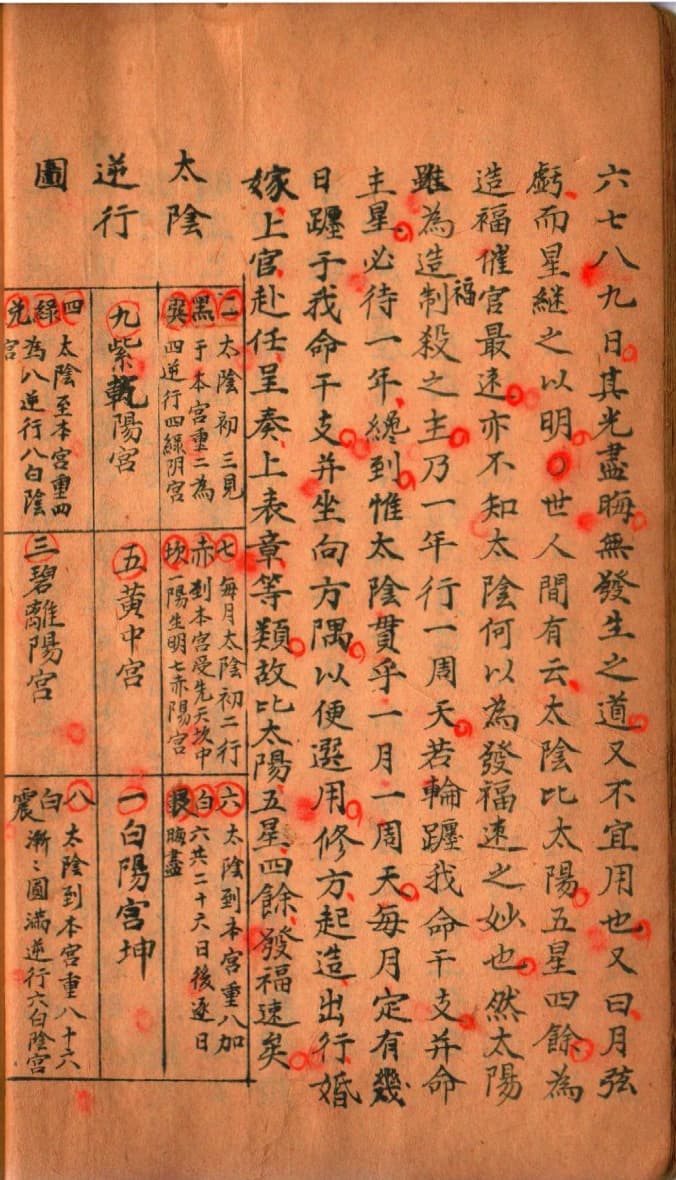 六七八九日其光盡晦無發生之道又不宜用也又曰月弦
虧而星継之以明世人間有云太陰比太陽五星四餘為
造福催官最速亦不知太陰何以為發福速之妙也然太陽
雖為造福制殺之主乃一年行一周天若輪躔我命干支并命
主星必待一年纔到惟太陰貫乎一月一周天每月定有幾
日躔于我命干支并坐向方隅以便選用修方起造出行婚
嫁上官赴任呈奏上表章等類故比太陽五星四餘發福速矣
太陰
逆行
圖
二黑巽
太陰初三見
于本宮重二為
四逆行四綠阴宮
七赤坎
每月太陰初二行
到本宮受先天坎中
一陽生明七赤陽宮
六白艮
太陰到本宮重八加
六共二十六日後逐日
晦盡
九紫乾陽宮
五黃中宮
一白陽宮坤
四綠兌宮
太陰至本宮重四
為八逆行八白陰
三碧離陽宮
八白震
太陰到本宮重八十六
漸〻圓滿逆行六白陰宮